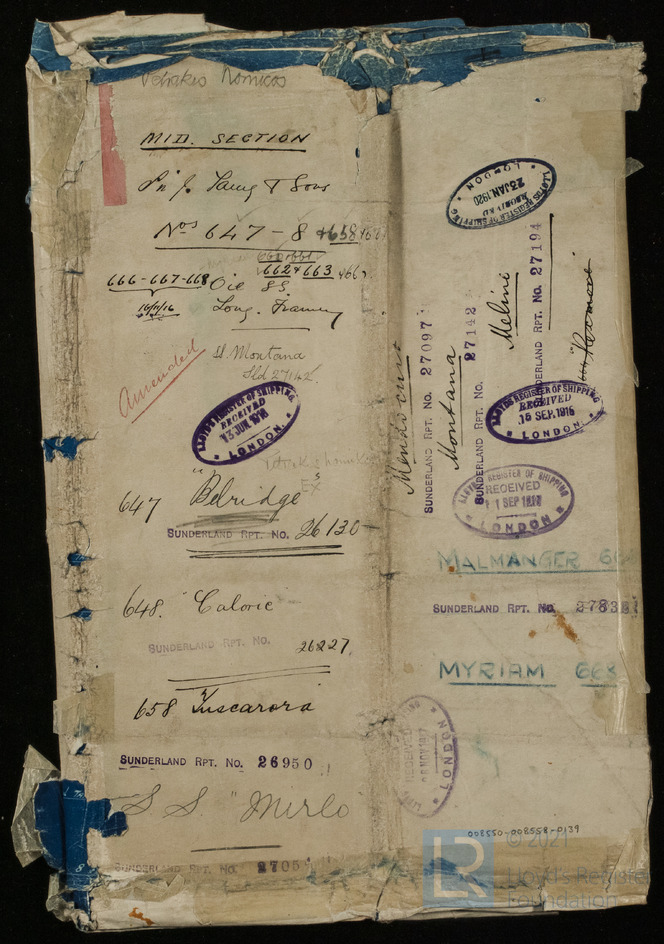 Petrakis Nomicos
MID. SECTION
Sir J. Laing & Sons
Nos 647-8 +658
660+661
662+663
666-667-668 Oil SS.
16/11/16 Long. Framing
Amended
SS. Montana
Sld 27142.
LLOYDS REGISTER OF SHIPPING.
RECEIVED
13 JUN
LONDON.
647 "Belridge"
SUNDERLAND RPT. NO. 26130
648. "Caloric"
SUNDERLAND RPT. NO. 26227.
658 Tuscarora
SUNDERLAND RPT. NO. 26950
S S. "Mirlo
SUNDERLAND RPT. NO. 2705
LLOYDS REGISTER OF SHIPPING
RECEIVED
23 JAN. 1920
LONDON
Mendocino
SUNDERLAND RPT. NO. 27097
Montana
SUNDERLAND RPT. NO. 27142
Meline
SUNDERLAND RPT. NO. 27194
LLOYDS REGISTER OF SHIPPING.
RECEIVED
15 SEP. 1916
LONDON.
LLOYDS REGISTER OF SHIPPING
RECEIVED
11 SEP
LONDON
MALMANGER 66
SUNDERLAND RPT. NO. 2783
MYRIAM 668
RECEIVED
NOV
LONDON
008550-008558-0139
LR
© 2021
Lloyd's Register
Foundation